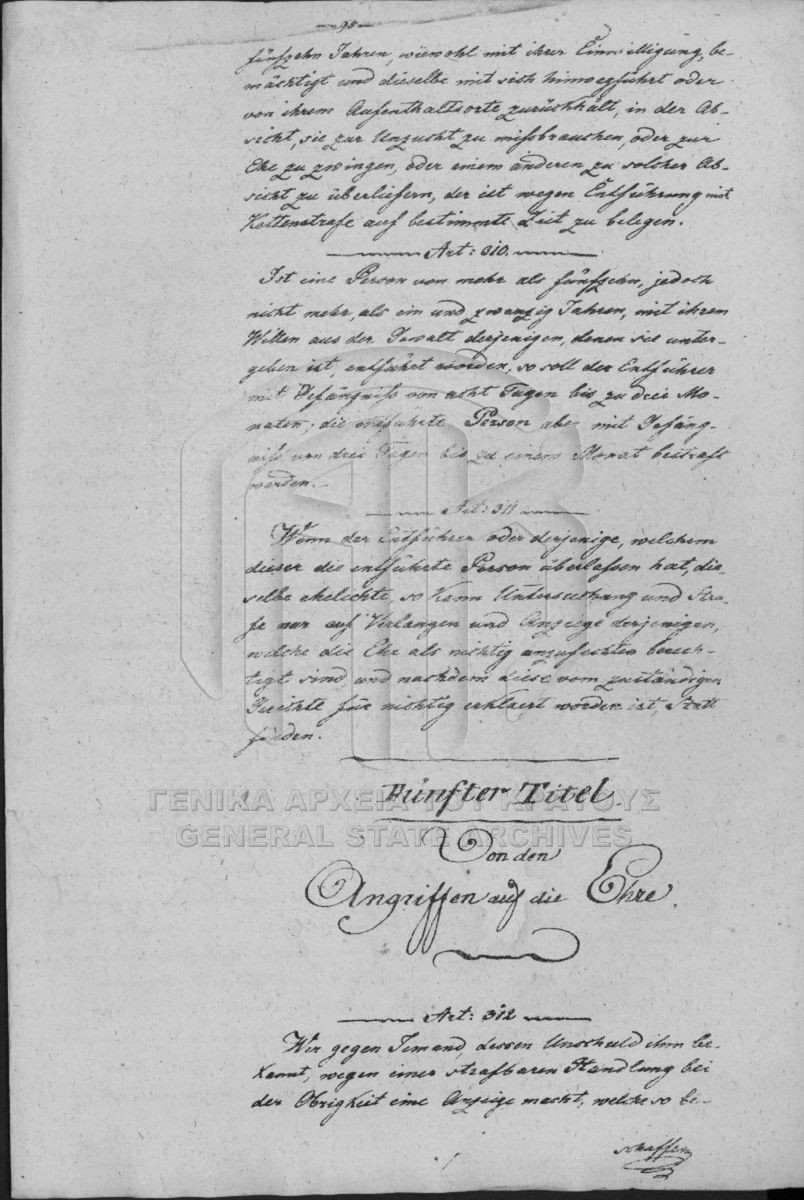 — 95 —
fünfzehn Jahren, wiewohl mit ihrer Einwilligung, be-
mächtigt und dieselbe mit sich hinwegführt oder
von ihrem Aufenthaltsorte zurückhält, in der Ab-
sicht, sie zur Unzucht zu missbrauchen, oder zur
Ehe zu zwingen, oder einem anderen zu solcher Ab-
sicht zu überliefern, der ist wegen Entführung mit
Kettenstrafe auf bestimmte Zeit zu belegen.
Art: 310.
Ist eine Person von mehr als fünfzehn, jedoch
nicht mehr, als ein und zwanzig Jahren, mit ihrem
Willen aus der Gewalt derjenigen, denen sie unter-
geben ist, entführt worden, so soll der Entführer
mit Gefängniss von acht Tagen bis zu drei Mo-
naten; die entführte Person aber mit Gefäng-
niss von drei Tagen bis zu einem Monat bestraft
werden.
Art: 311
Wenn der Entführer oder derjenige, welchem
dieser die entführte Person überlassen hat, die-
selbe ehelichte, so kann Untersuchung und Stra-
fe nur auf Verlangen und Anzeige derjenigen,
welche die Ehe als nichtig anzufechten berech-
tigt sind, und nachdem diese vom zuständigen
Gerichte für nichtig erklaert worden ist, Statt
finden.
Fünfter Titel.
ΓΕΝΙΚΑ ΑΡΧΕΙΑ ΤΟΥ ΚΡΑΤΟΥΣ
GENERAL STATE ARCHIVES
Von den
Angriffen auf die Ehre.
Art: 312
Wer gegen Jemand, dessen Unschuld ihm be-
kannt, wegen einer strafbaren Handlung bei
der Obrigkeit eine Anzeige macht, welche so be-
schaffen